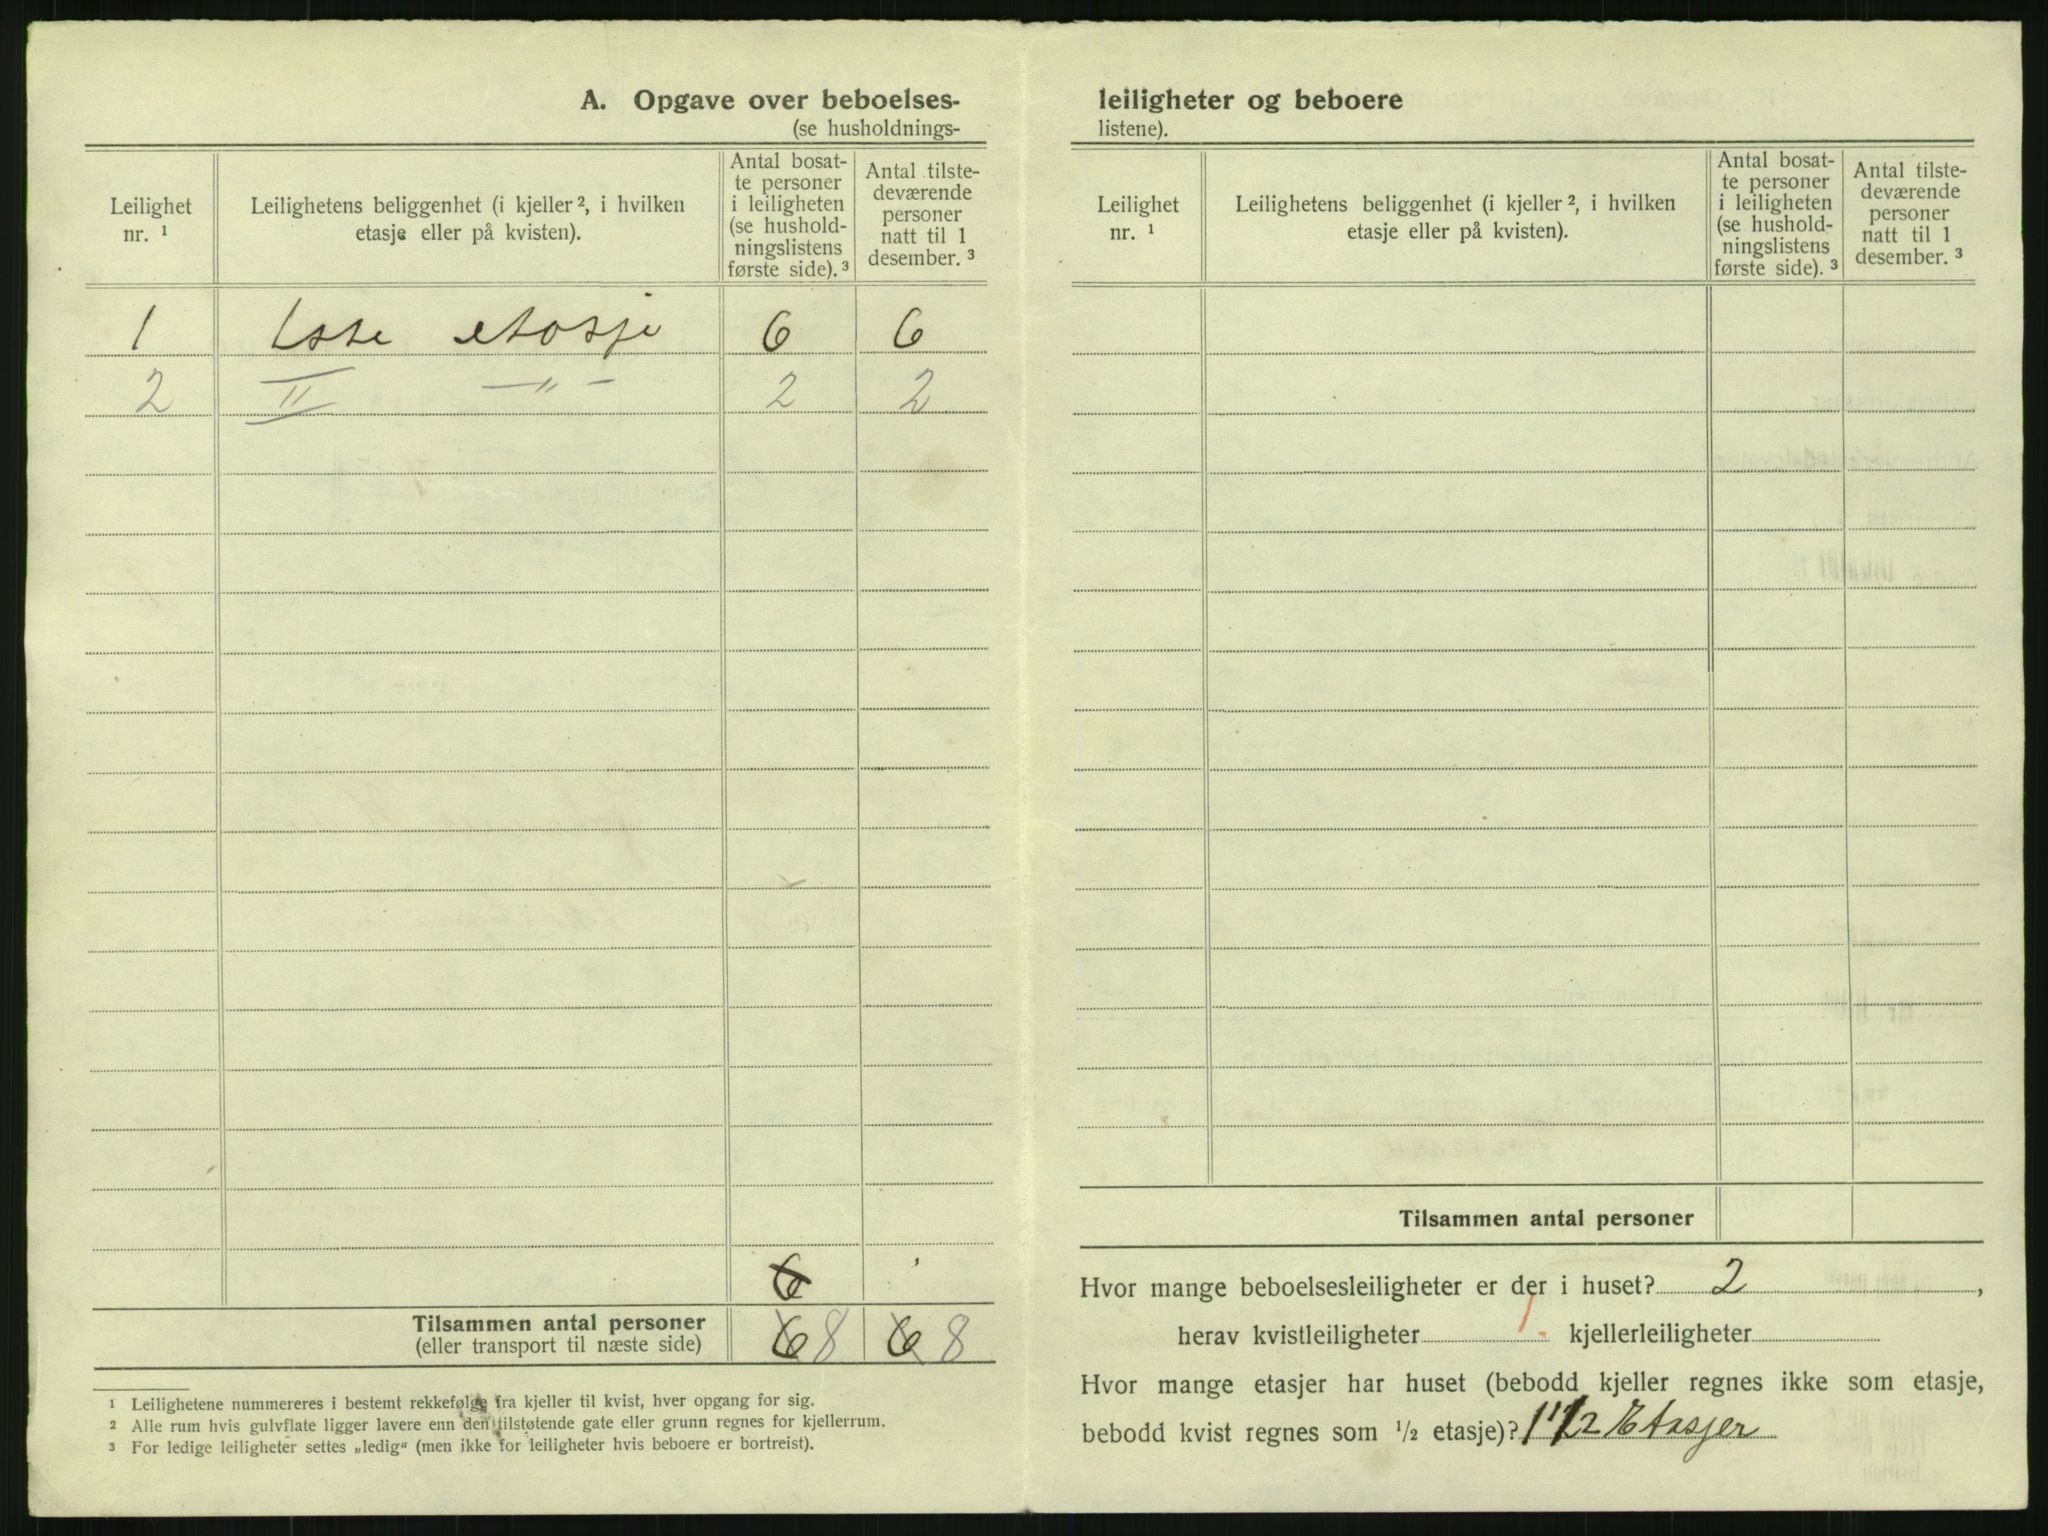 A. Opgave over beboelses-
(se husholdnings-
Leilighet nr. 1
Leilighetens beliggenhet (i kjeller 2, i hvilken
etasje eller på kvisten).
Antal bosat-
te personer
i leiligheten
(se hushold-
ningslistens
første side). 3
Antal tilste-
deværende
personer
natt til 1
desember. 3
1 1ste etasje 6 6
2 II — " — 2 2
6
Tilsammen antal personer 6 8 6 8
(eller transport til næste side)
1 Leilighetene nummereres i bestemt rekkefølge fra kjeller til kvist, hver opgang for sig.
2 Alle rum hvis gulvflate ligger lavere enn den tilstøtende gate eller grunn regnes for kjellerrum.
3 For ledige leiligheter settes „ledig“ (men ikke for leiligheter hvis beboere er bortreist).
leiligheter og beboere
listene).
Leilighet
nr. 1
Leilighetens beliggenhet (i kjeller 2, i hvilken
etasje eller på kvisten).
Antal bosat-
te personer
i leiligheten
(se hushold-
ningslistens
første side). 3
Antal tilste-
deværende
personer
natt til 1
desember. 3
Tilsammen antal personer
Hvor mange beboelsesleiligheter er der i huset? 2 ,
herav kvistleiligheter 1. kjellerleiligheter
Hvor mange etasjer har huset (bebodd kjeller regnes ikke som etasje,
bebodd kvist regnes som 1/2 etasje)? 1 1/2 Etasjer